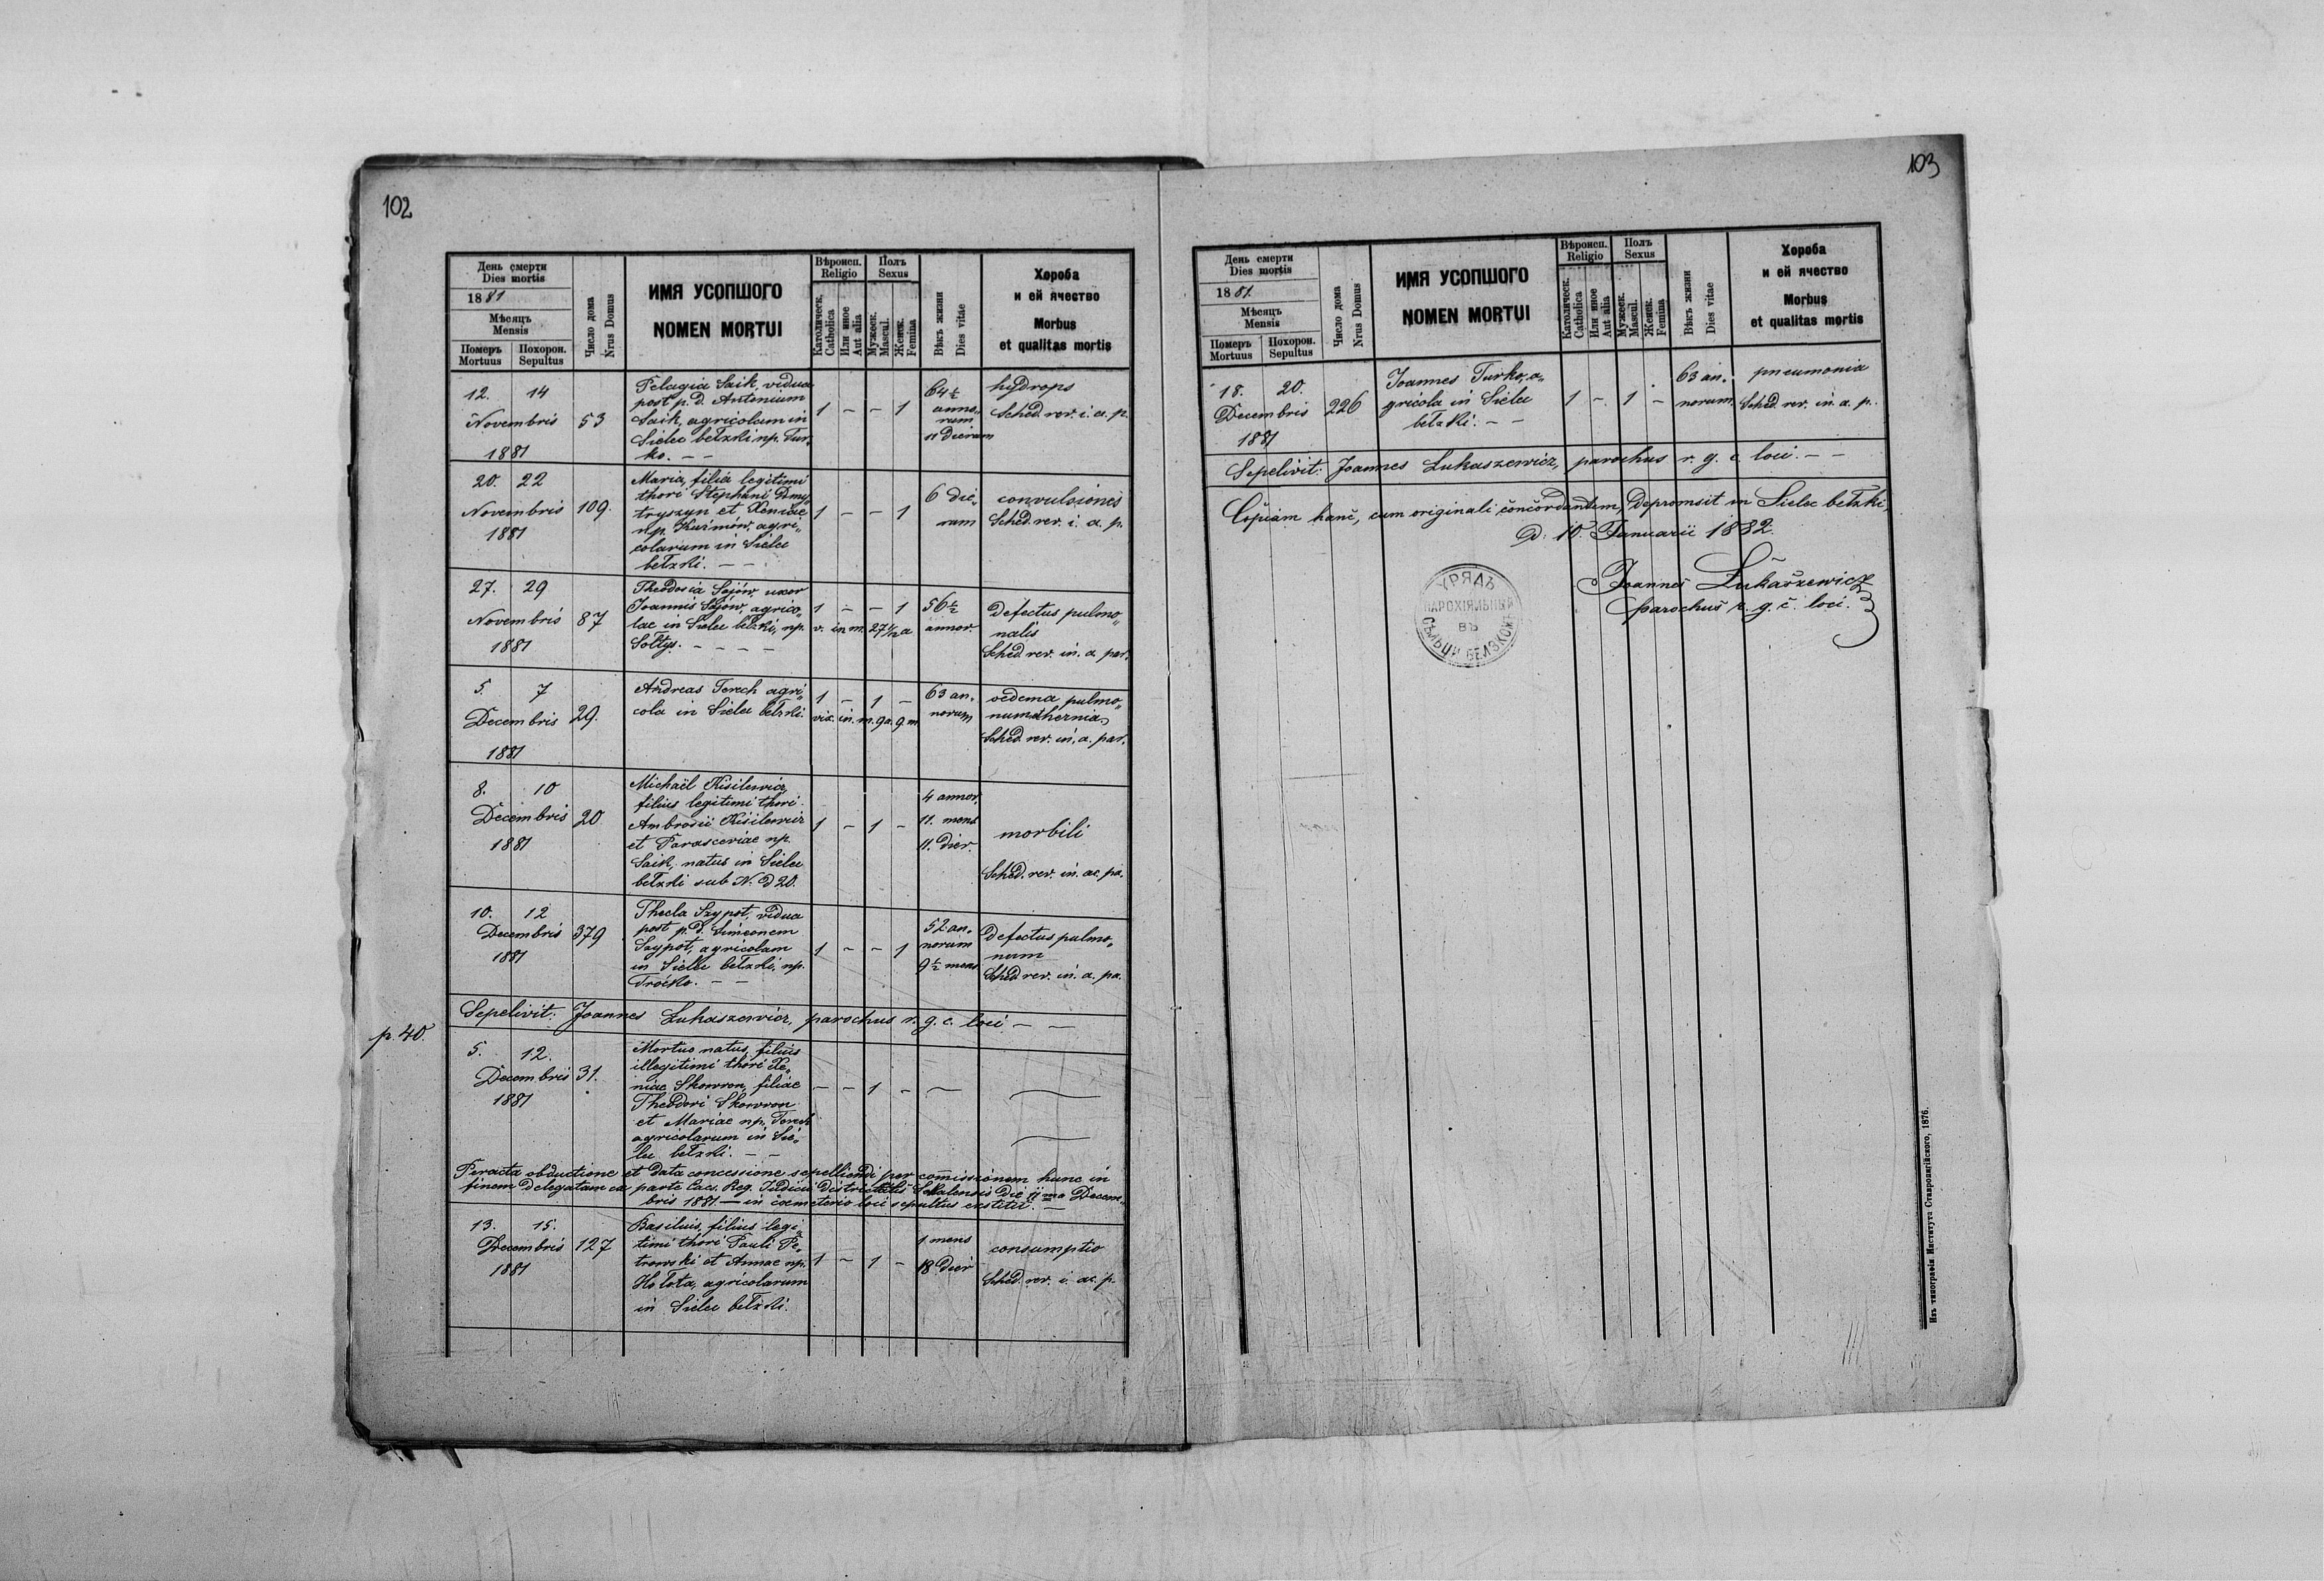 102
День смерти
Dies mortis
1881
Мѣсяцъ
Mensis
Померъ
Mortuus
Похорон.
Sepultus
Число дома
Nrus Domus
ИМЯ УСОПШОГО
NOMEN MORTUI
Вѣроисп.
Religio
Католическ.
Catholica
Или иное
Aut alia
Полъ
Sexus
Мужеск.
Mascul.
Женск.
Femina
Вѣкъ жизни
Dies vitae
Хороба
и ей ячество
Morbus
et qualitas mortis
12. 14
Novembris
1881
53
Pelagia Saik, vidua
post p. d. Antonium
Saik, agricolam in
Sielec bełzki np. Tur„
ko. – –
1 – – 1
64½
anno„
rum
11 dierum
hydrops
Sched. rev. i. a. p.
20. 22
Novembris
1881
109.
Maria, filia legitimi
thori Stephani Dmy„
tryszyn et Xeniae
np. Kuźmów, agri„
colarum in Sielec
bełzki. – –
1 – – 1
6 die„
rum
convulsiones
Sched. rev. i. a. p.
27. 29
Novembris
1881
87
Theodosia Sojów uxor
Joannis Sojów, agrico„
lae in Sielec bełzki, np.
Sołtys. – – – –
1 – – 1
v. in m. 27 1/12 a
56½
annor.
Defectus pulmo„
nalis
Sched. rev. in. a. par.
5. 7
Decembris
1881
29.
Andreas Terech agri„
cola in Sielec bełzki.
1 – 1 –
vix. in. m. 9a. 9m
63 an„
norum
oedema pulmo„
num &hernia
Sched. rev. in. a. par.
8. 10
Decembris
1881
20
Michaël Kisilewicz,
filius legitimi thori
Ambrosii Kisilewicz
et Parasceviae np.
Saik, natus in Sielec
bełzki sub N. d 20.
1 – 1 –
4 annor.
11. mens
11. dier.
morbili
Sched. rev. in. ac. pa.
10. 12
Decembris
1881
379
Thecla Szypot, vidua
post p. d. Simeonem
Szypot, agricolam
in Sielec bełzki, np.
Troćko. – –
1 – – 1
52 an„
norum
9½ mens
Defectus pulmo„
num
Sched. rev. in. a. pa.
Sepelivit: Joannes Łukaszewicz, parochus r. g. c. loci – –
p. 40.
5. 12.
Decembris
1881
31.
Mortuo natus, filius
illegitimi thori Xe„
niae Skowron, filiae
Theodori Skowron
et Mariae np. Terech
agricolarum in Sie„
lec bełzki. – –
– – 1 – –
Peracta obductione et data concessione sepelliendi per comissionem hunc in
finem delegatam ex parte Caes. Reg. Judicii districtualis Sokalensis die 11ma Decem„
bris 1881 — in coemeterio loci sepultus exstitit. –
13. 15.
Decembris
1881
127
Basilius, filius legi„
timi thori Pauli Pe„
trowski et Annae np.
Hołota, agricolarum
in Sielec bełzki.
1 – 1 –
1 mens
18 dier
consumptio
Sched. rev. i. ac. p.
103
День смерти
Dies mortis
1881.
Мѣсяцъ
Mensis
Померъ
Mortuus
Похорон.
Sepultus
Число дома
Nrus Domus
ИМЯ УСОПШОГО
NOMEN MORTUI
Вѣроисп.
Religio
Католическ.
Catholica
Или иное
Aut alia
Полъ
Sexus
Мужеск.
Mascul.
Женск.
Femina
Вѣкъ жизни
Dies vitae
Хороба
и ей ячество
Morbus
et qualitas mortis
18. 20.
Decembris
1881
226
Joannes Turko, a„
gricola in Sielec
bełzki. – –
1 – 1 –
63 an„
norum.
pneumonia
Sched. rev. in. a. p.
Sepelivit: Joannes Łukaszewicz, parochus r. g. c. loci. – –
Copiam hanc, cum originali concordantem, depromsit in Sielec bełzki,
d. 10. Januarii 1882.
Joannes Łukaszewicz
parochus r. g. c. loci.
УРЯДЪ
ПАРОХІЯЛЬНЫЙ
ВЪ
СѢЛЬЦИ БЕЛЗКОМЪ
Изъ типографіи Института Ставропигійского, 1876.